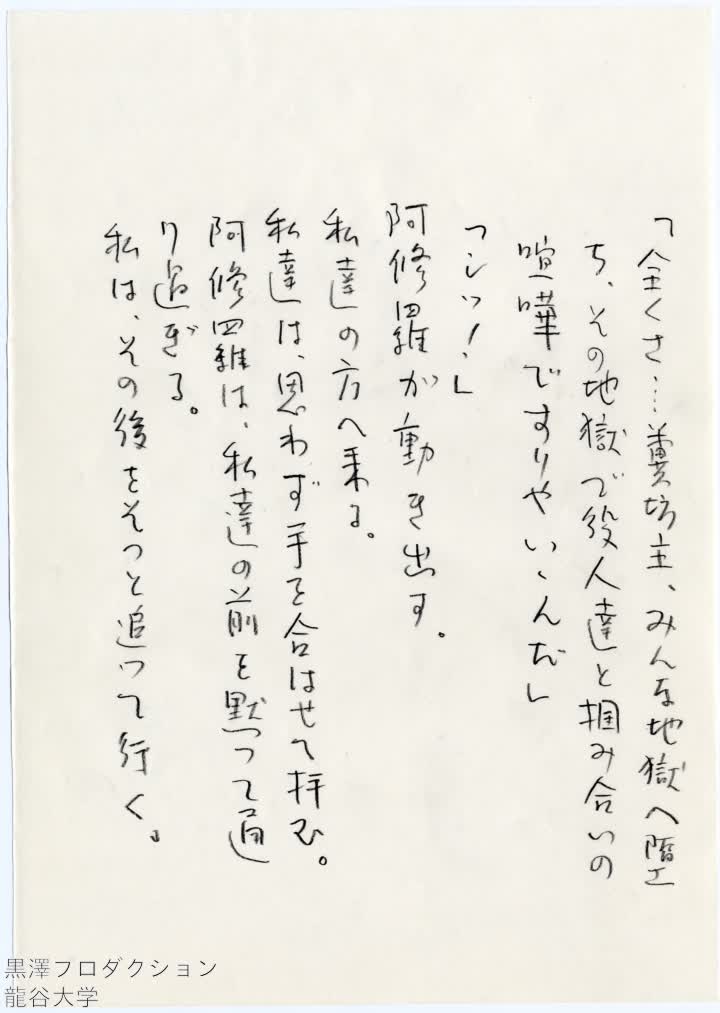 「全くさ…糞坊主、みんな地獄へ墜
ち、その地獄で役人達と掴み合いの
喧嘩ですりやいゝんだ」
「シッ！」
阿修羅が動き出す。
私達の方へ来る。
私達は、思わず手を合はせて拝む。
阿修羅は、私達の前を黙つて通
り過ぎる。
私は、その後をそつと追つて行く。
黒澤プロダクション
龍谷大学